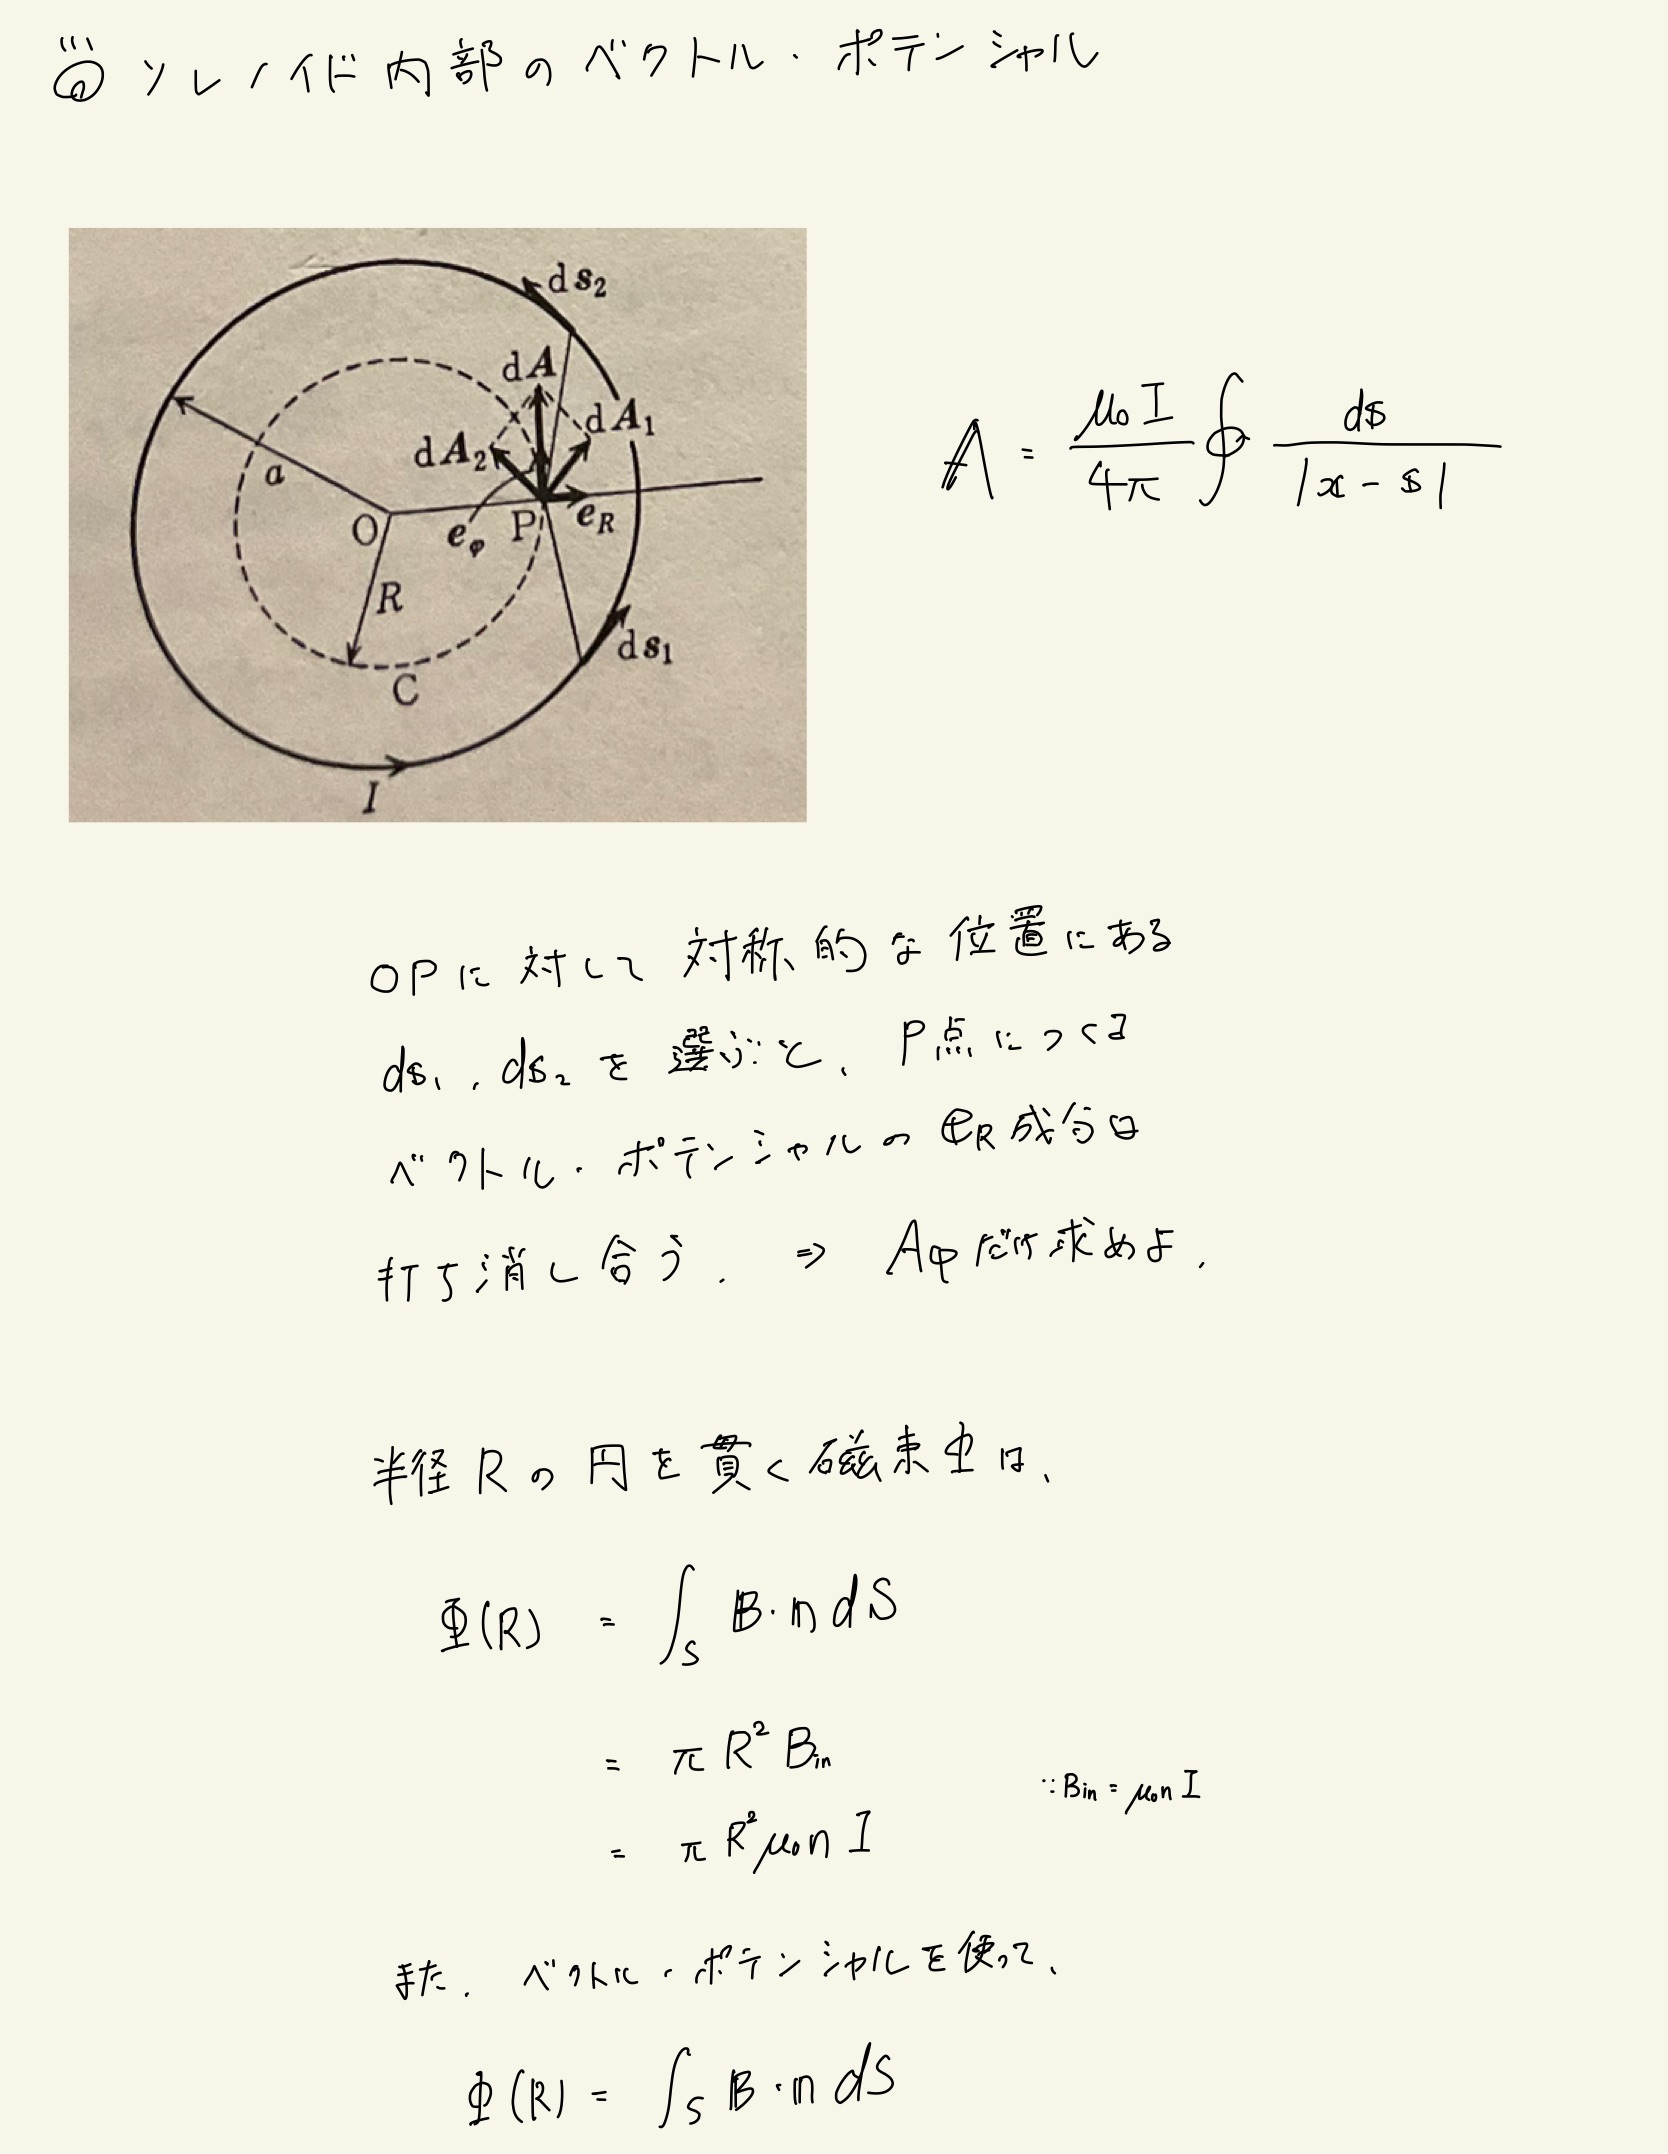 ◎ ソレノイド内部のベクトル・ポテンシャル
ds₂
dA
dA₁
dA₂
a
O
e_φ
P
e_R
R
ds₁
C
I
A = μ₀I/4π ∮ ds/|x - s|
OPに対して対称的な位置にある
ds₁, ds₂ を選ぶと、P点につくる
ベクトル・ポテンシャルの e_R 成分は
打ち消し合う. ⇒ Aφだけ求めよ.
半径Rの円を貫く磁束Φは、
Φ(R) = ∫_S B・n dS
= πR² B_in
∵ B_in = μ₀nI
= πR² μ₀nI
また. ベクトル・ポテンシャルを使って、
Φ(R) = ∫_S B・n dS